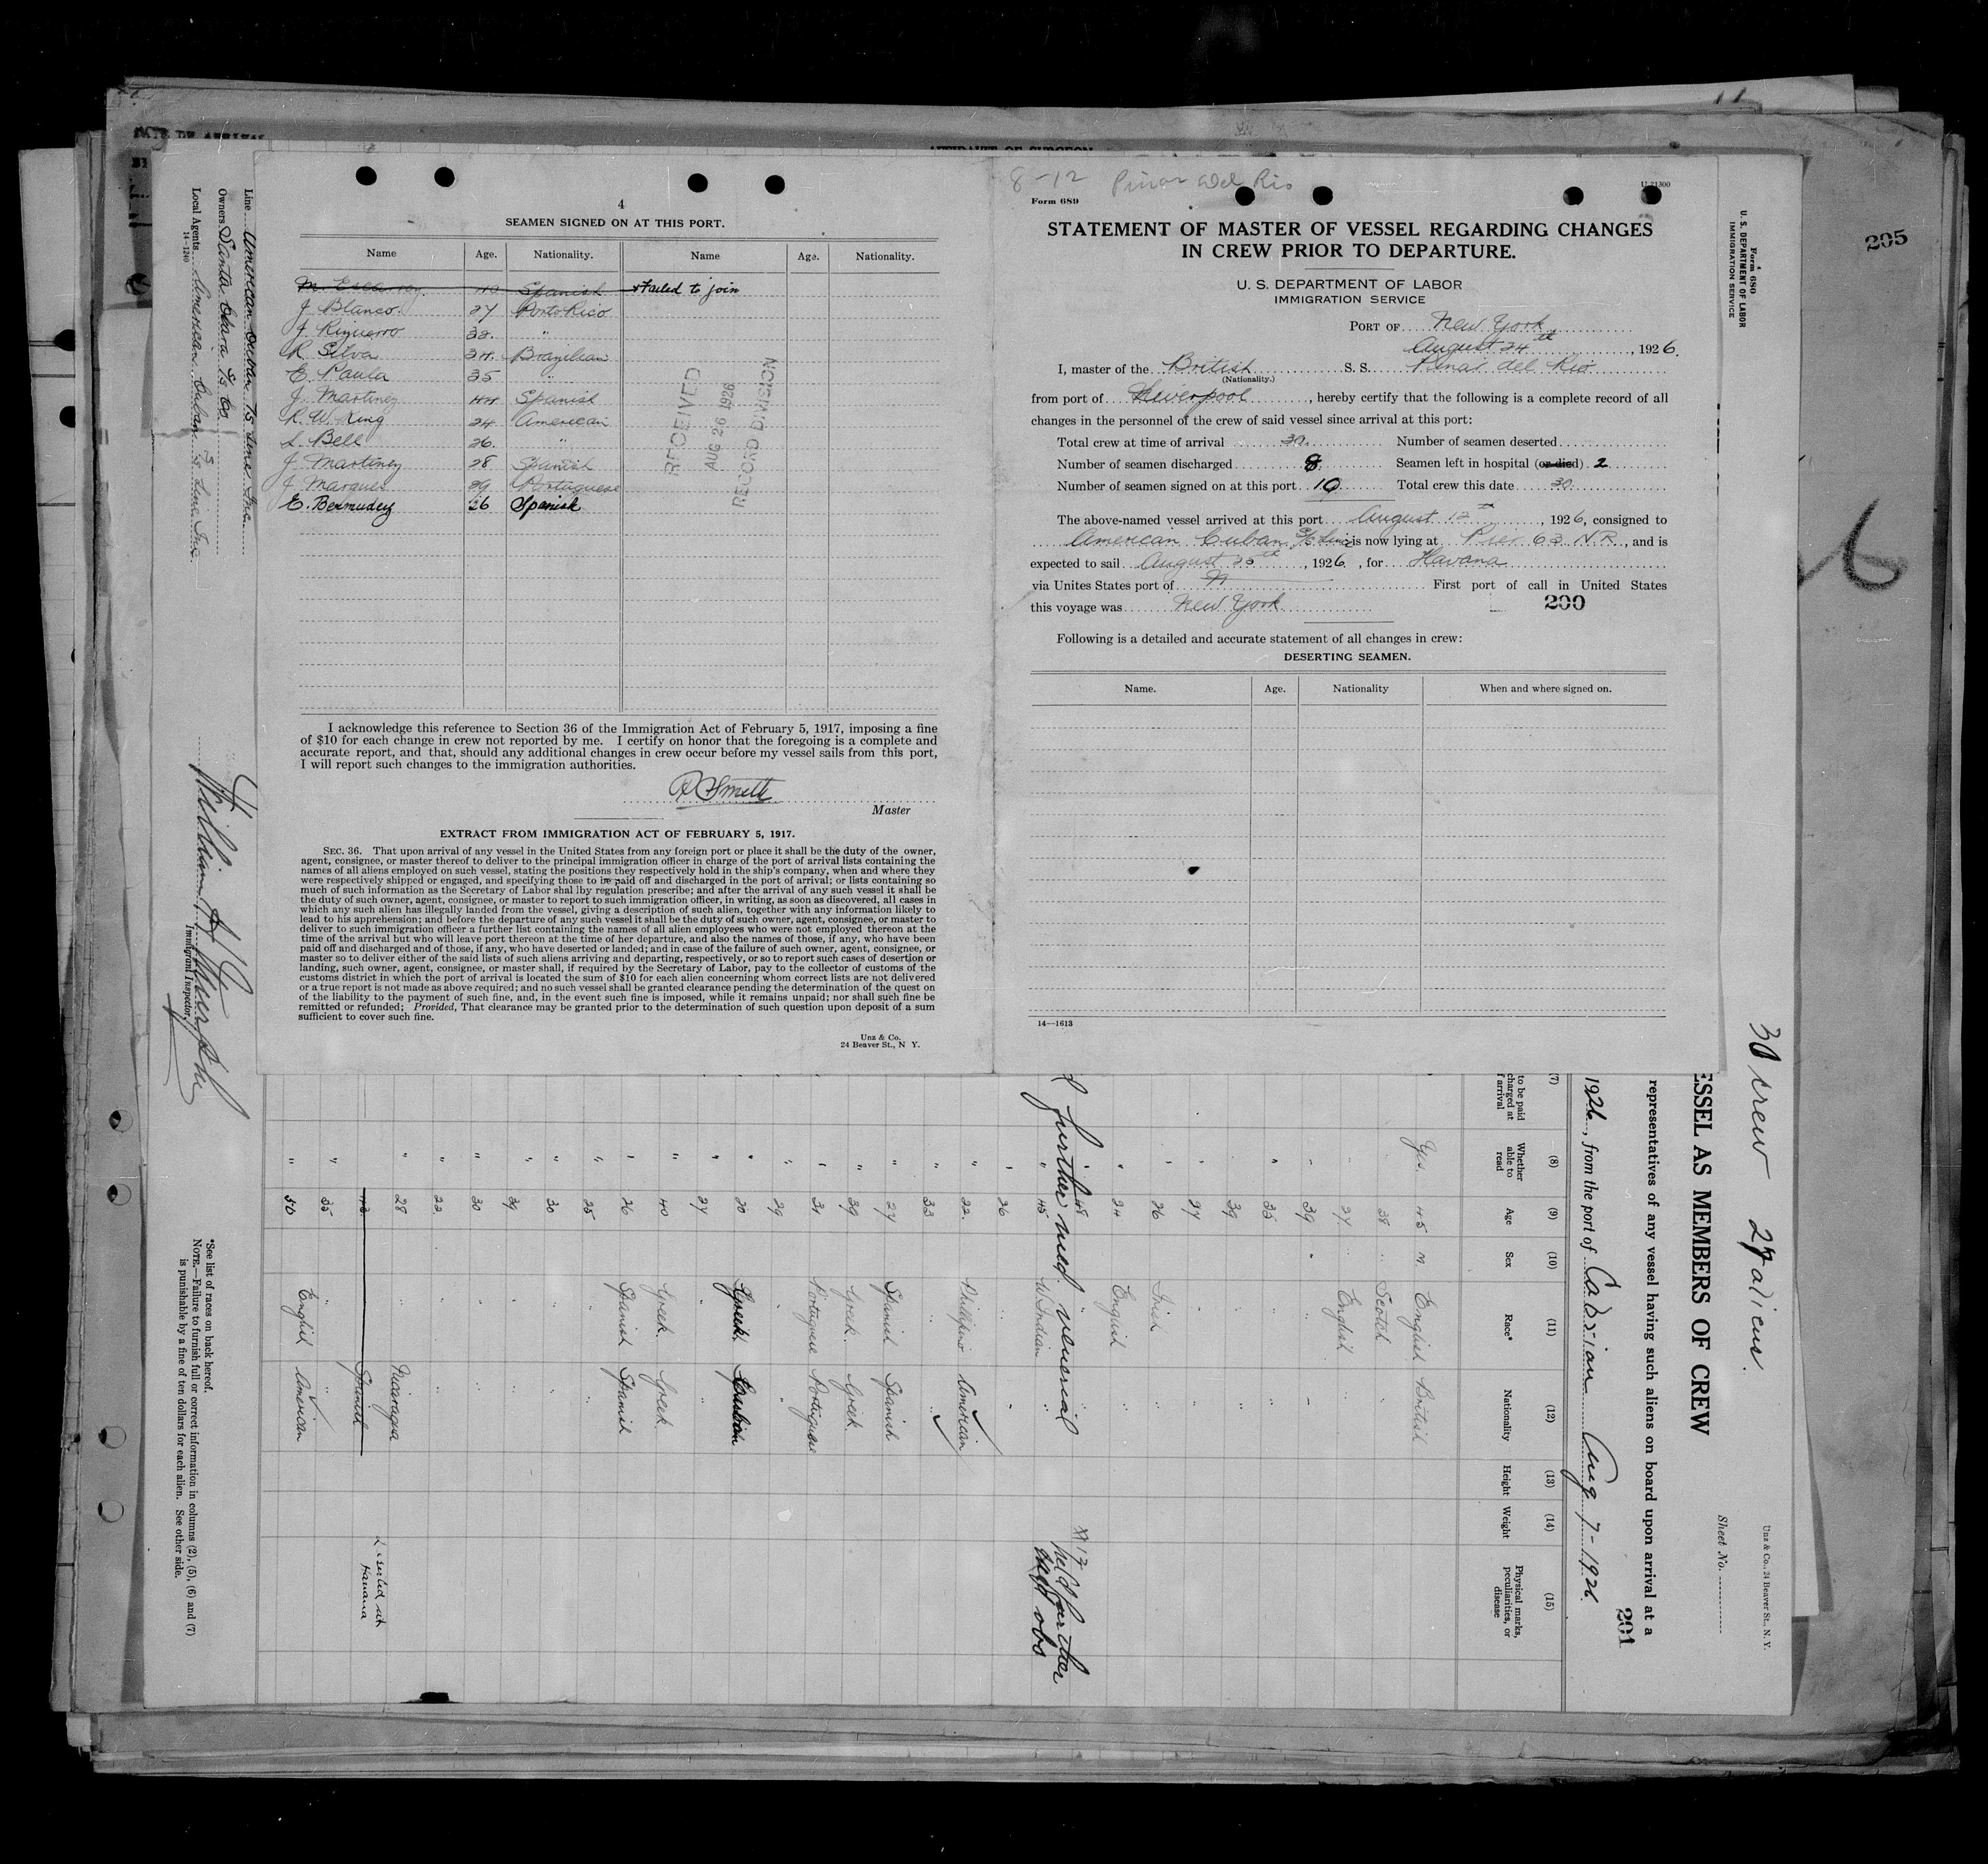 205
4
SEAMEN SIGNED ON AT THIS PORT.
Name Age. Nationality. Name Age. Nationality.
40 Spanish x Failed to join
J Blanco. 27 Porto Rico
J Riguerro 32. "
R Silva 24. Brazilian
E. Paula 35 "
J. Martinez 44 Spanish
R. W. King 24 American
L. Bell 26. "
J. Martinez 28 Spanish
J Marques 29 Portuguese
E. Bermudez 26 Spanish
RECEIVED
AUG 26 1926
RECORD DIVISION
I acknowledge this reference to Section 36 of the Immigration Act of February 5, 1917, imposing a fine
of $10 for each change in crew not reported by me. I certify on honor that the foregoing is a complete and
accurate report, and that, should any additional changes in crew occur before my vessel sails from this port,
I will report such changes to the immigration authorities.
Smith
Master
EXTRACT FROM IMMIGRATION ACT OF FEBRUARY 5, 1917.
SEC. 36. That upon arrival of any vessel in the United States from any foreign port or place it shall be the duty of the owner,
agent, consignee, or master thereof to deliver to the principal immigration officer in charge of the port of arrival lists containing the
names of all aliens employed on such vessel, stating the positions they respectively hold in the ship's company, when and where they
were respectively shipped or engaged, and specifying those to be paid off and discharged in the port of arrival; or lists containing so
much of such information as the Secretary of Labor shal lby regulation prescribe; and after the arrival of any such vessel it shall be
the duty of such owner, agent, consignee, or master to report to such immigration officer, in writing, as soon as discovered, all cases in
which any such alien has illegally landed from the vessel, giving a description of such alien, together with any information likely to
lead to his apprehension; and before the departure of any such vessel it shall be the duty of such owner, agent, consignee, or master to
deliver to such immigration officer a further list containing the names of all alien employees who were not employed thereon at the
time of the arrival but who will leave port thereon at the time of her departure, and also the names of those, if any, who have been
paid off and discharged and of those, if any, who have deserted or landed; and in case of the failure of such owner, agent, consignee, or
master so to deliver either of the said lists of such aliens arriving and departing, respectively, or so to report such cases of desertion or
landing, such owner, agent, consignee, or master shall, if required by the Secretary of Labor, pay to the collector of customs of the
customs district in which the port of arrival is located the sum of $10 for each alien concerning whom correct lists are not delivered
or a true report is not made as above required; and no such vessel shall be granted clearance pending the determination of the quest on
of the liability to the payment of such fine, and, in the event such fine is imposed, while it remains unpaid; nor shall such fine be
remitted or refunded; Provided, That clearance may be granted prior to the determination of such question upon deposit of a sum
sufficient to cover such fine.
Unz & Co.
24 Beaver St., N Y.
8-12 Pinar del Rio
Form 689
STATEMENT OF MASTER OF VESSEL REGARDING CHANGES
IN CREW PRIOR TO DEPARTURE.
U. S. DEPARTMENT OF LABOR
IMMIGRATION SERVICE
PORT OF New York
August 24th, 1926.
I, master of the British S. S. Pinar del Rio
(Nationality.)
from port of Liverpool, hereby certify that the following is a complete record of all
changes in the personnel of the crew of said vessel since arrival at this port:
Total crew at time of arrival 30. Number of seamen deserted
Number of seamen discharged 8 Seamen left in hospital (or died) 2
Number of seamen signed on at this port 10 Total crew this date 30
The above-named vessel arrived at this port August 12th, 1926, consigned to
American Cuban S/S Line is now lying at Pier 63 N.R., and is
expected to sail August 25th, 1926, for Havana
via Unites States port of First port of call in United States
this voyage was New York
200
Following is a detailed and accurate statement of all changes in crew:
DESERTING SEAMEN.
Name. Age. Nationality When and where signed on.
14—1613
Form 680
U. S. DEPARTMENT OF LABOR
IMMIGRATION SERVICE
30 crew 27 aliens.
Unz & Co. 24 Beaver St., N. Y.
Sheet No.
ESSEL AS MEMBERS OF CREW
representatives of any vessel having such aliens on board upon arrival at a
201
1926, from the port of Aug 7-1926.
(7) (8) (9) (10) (11) (12) (13) (14) (15)
to be paid
charged at
f arrival
Whether
able to
read
Age
Sex
Race*
Nationality
Height
Weight
Physical marks,
peculiarities, or
disease
Yes. 45 m English British
38 " Scotch "
27. English
39
35
39
27
26 Irish
24 English
48
further med. venereal
45 W. Indian
held further
obs
26
22. Phillipino American
33
27 Spanish Spanish
39 Greek. Greek.
31 Portuguese Portuguese
29
30 Greek. Cuban
27
40 Greek. Greek
26 Spanish Spanish
25
30
39
30
22
28 Nicaragua
Spanish Deserted at
Havana
35
50 English American
*See list of races on back hereof.
NOTE.—Failure to furnish full or correct information in columns (2), (5), (6) and (7)
is punishable by a fine of ten dollars for each alien. See other side.
Line American Cuban SS Line Inc.
Owners Santa Clara SS. Co.
Local Agents American Cuban S.S. Line Inc.
14-1240
William
Immigrant Inspector.